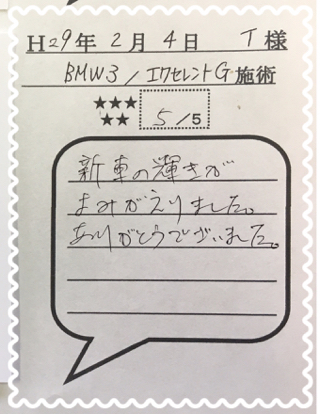 H29年2月4日 T様
BMW3/エクセレントG施術
★★★
★★
5/5
新車の輝きが
よみがえりました。
ありがとうございました。